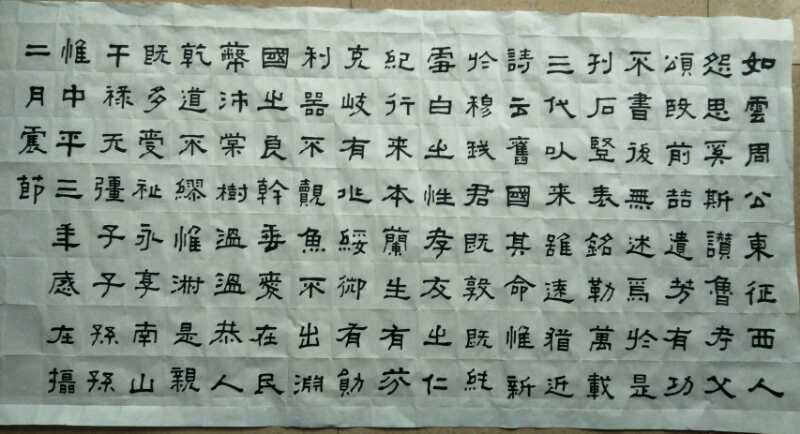 如雲周公東征西人
怨思奚斯讚魯考父
頌殷前喆遺芳有功
不書後無述焉於是
刊石豎表銘勒萬載
三代以來雖遠猶近
詩云舊國其命惟新
於穆我君既敦既純
雪白之性孝友之仁
紀行來本蘭生有芬
克岐有兆綏御有勛
利器不覿魚不出淵
國之良幹垂愛在民
蔽沛棠樹溫溫恭人
乾道不繆惟淑是親
既多受祉永享南山
干祿无彊子子孫孫
惟中平三年歲在攝
二月震節